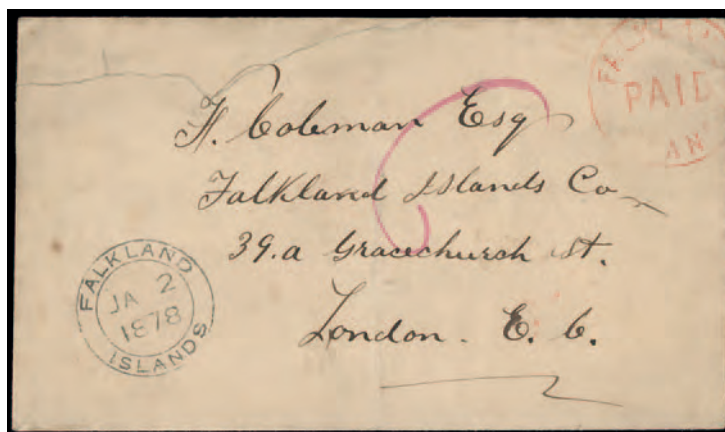 PAID
F. Coleman Esq
Falkland Islands Co
39.a Gracechurch St.
London. E. C.
FALKLAND
JA 2
1878
ISLANDS